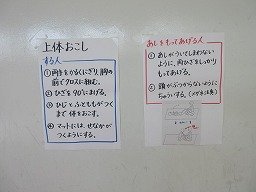 上体おこし
する人
① 両手をかるくにぎり、胸の
前でクロスに組む。
② ひざを90°にまげる。
③ ひじとふとももがつく
まで体をおこす。
④ マットには、せなかが
つくようにする。
あしをもってあげる人
① あしがういてしまわない
ように、両ひざをしっかり
もってあげる。
② 頭がぶつからないように
ちゅういする。